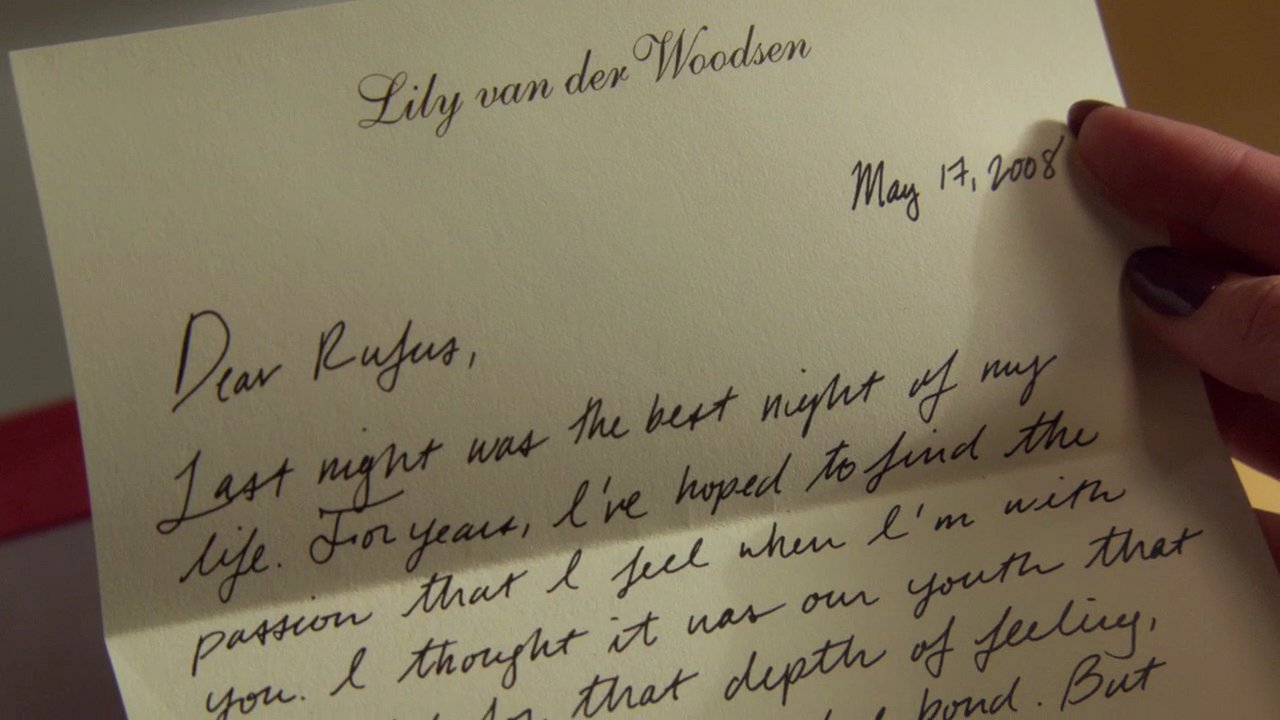 Lily van der Woodsen
May 17, 2008
Dear Rufus,
Last night was the best night of my
life. For years, I've hoped to find the
passion that I feel when I'm with
you. I thought it was our youth that
for that depth of feeling,
bond. But